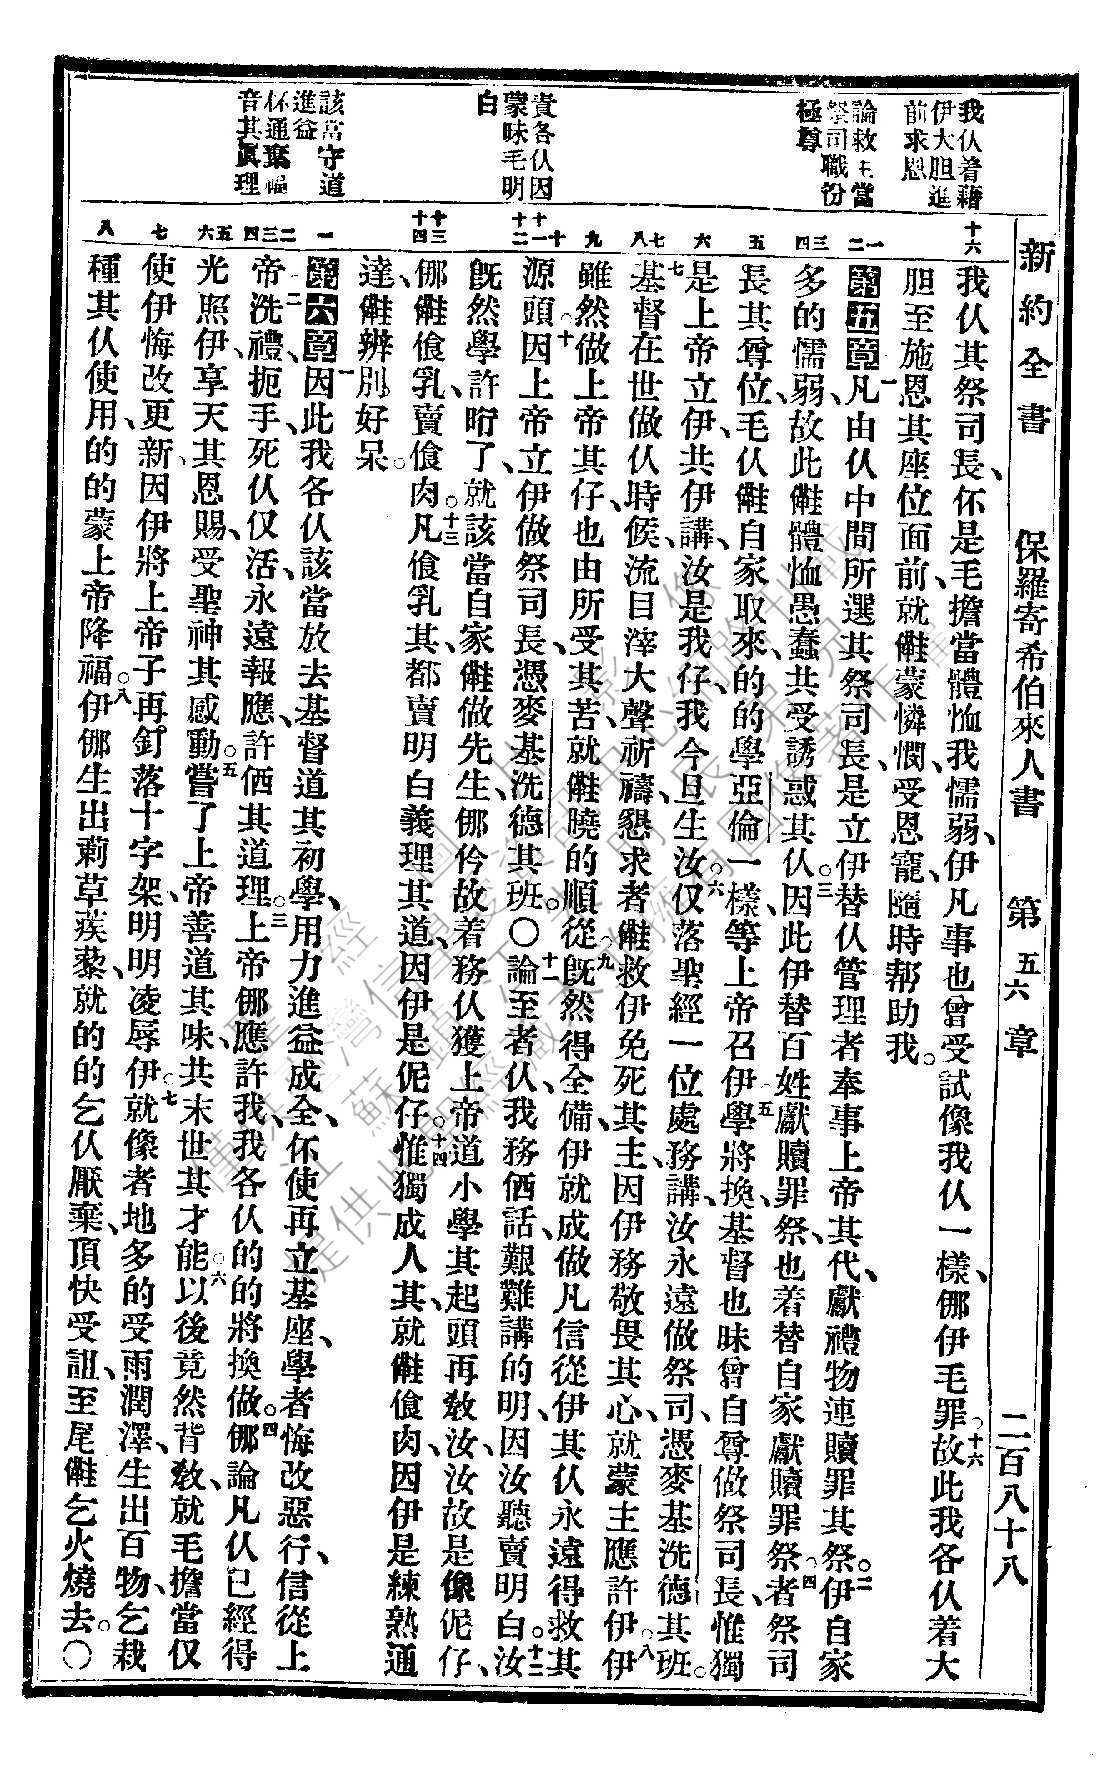 新約全書　保羅寄希伯來人書　第五六章　二百八十八
我仈着藉
伊大胆進
前求恩
論救主當
祭司職份
極尊
責各仈因
蒙昧毛明
白
該當守道
進益
伓通棄福
音其眞理
十六
一二
三四
五
六
七八
九
十十一十二
十三十四
一
二三四
五六
七
八
我仈其祭司長、伓是毛擔當體恤我懦弱、伊凡事也曾受試像我仈一樣、㑚伊毛罪。十六故此我各仈着大
胆至施恩其座位面前、就䧹蒙憐憫、受恩寵、隨時帮助我。
第五章一凡由仈中間所選其祭司長、是立伊替仈管理者奉事上帝其代、獻禮物連贖罪其祭。二伊自家
多的懦弱、故此䧹體恤愚蠢共受誘惑其仈。三因此伊替百姓獻贖罪祭、也着替自家獻贖罪祭。四者祭司
長其尊位、毛仈䧹自家取來、的的學亞倫一樣、等上帝召伊。五學將換、基督也昧曾自尊做祭司長、惟獨
是上帝立伊、共伊講、汝是我仔、我今旦生汝。六仅落聖經一位處務講、汝永遠做祭司、憑麥基洗德其班。
七基督在世做仈時候、流目滓大聲祈禱、懇求者䧹救伊免死其主、因伊務敬畏其心、就蒙主應許伊。八伊
雖然做上帝其仔、也由所受其苦、就䧹曉的順從。九旣然得全備、伊就成做凡信從伊其仈永遠得救其
源頭。十因上帝立伊做祭司長、憑麥基洗德其班。〇十一論至者仈、我務価話艱難講的明、因汝聽賣明白。十二汝
旣然學許昨了、就該當自家䧹做先生、㑚仱故着務仈獲上帝道小學其起頭再教汝、汝故是像伲仔、
㑚䧹飡乳、賣飡肉。十三凡飡乳其、都賣明白義理其道、因伊是伲仔。十四惟獨成人其、就䧹飡肉、因伊是練熟通
達、䧹辨別好呆。
第六章一因此我各仈該當放去基督道其初學、用力進益成全、伓使再立基座、學者悔改惡行、信從上
帝、二洗禮、扼手、死仈仅活、永遠報應、許価其道理。三上帝㑚應許我、我各仈的的將換做。四㑚論凡仈已經得
光照伊、享天其恩賜、受聖神其感動、五嘗了上帝善道其味、共末世其才能、六以後竟然背教、就毛擔當仅
使伊悔改更新、因伊將上帝子再釘落十字架、明明凌辱伊。七就像者地、多的受雨潤澤、生出百物、乞栽
種其仈使用、的的蒙上帝降福。八伊㑚生出莿草蒺藜、就的的乞仈厭棄、頂快受詛、至尾䧹乞火燒去。〇